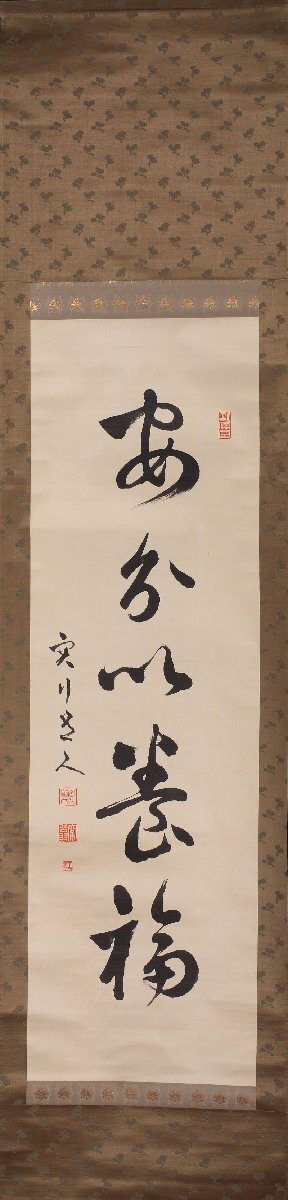 安分以養福
実川道人